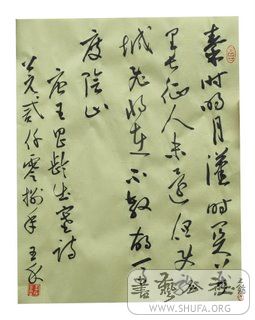 秦时明月漢时关萬
里长征人未还但使龙
城飞将在不教胡马
度陰山
唐王昌龄出塞诗
公元贰仟零拾年王
WWW.SHUFA.ORG